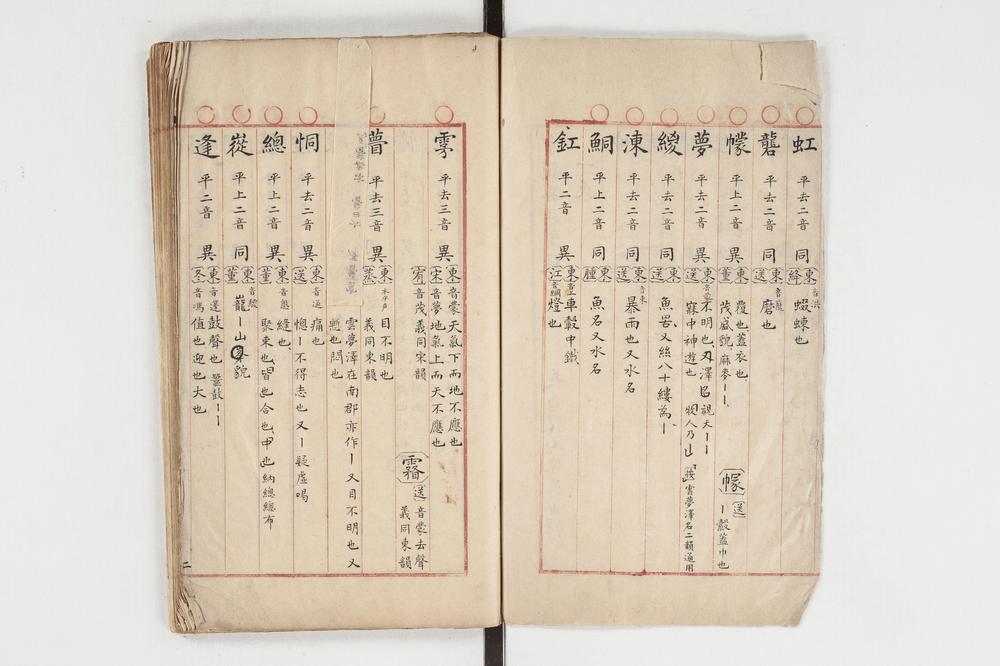 虹 平去二音 同 東 音洪 蝃蝀也
絳
礱 平去二音 同 東 音籠 磨也
送
幪 平上二音 異 東 覆也蓋衣也
董 茂盛皃麻麥｜｜
幏 送 ｜縠蓋巾也
夢 平去二音 異 東 音蒙 不明也又澤名 視天｜｜
送 寐中神遊也 牧人乃｜ 按雲夢澤名二韻通用
緵 平去二音 同 東 魚罟又絲八十縷為｜
送
涷 平去二音 同 東 音東 暴雨也又水名
送
鮦 平上二音 同 東 魚名又水名
腫
釭 平二音 異 東 音工 車轂中鐵
江 音綱 燈也
雺 平去三音 異 東 音蒙天氣下而地不應也
宋 音夢地氣上而天不應也
宥 音茂義同宋韻
霿 送 音蒙去聲
義同東韻
瞢 平去三音 異 東 目不明也
蒸 義同東韻
雲夢澤在南郡亦作｜又目不明也又
慙也悶也
恫 平去二音 異 東 音通 痛也
送 惚｜不得志也又｜疑虛喝
總 平上二音 異 東 音悤 縫也
董 聚束也皆也合也中也納總總布
嵸 平上二音 同 東 音騣 巃｜山皃
董
逢 平二音 異 東 音蓬 鼓聲也 鼉鼓｜｜
冬 音馮 值也迎也大也
二